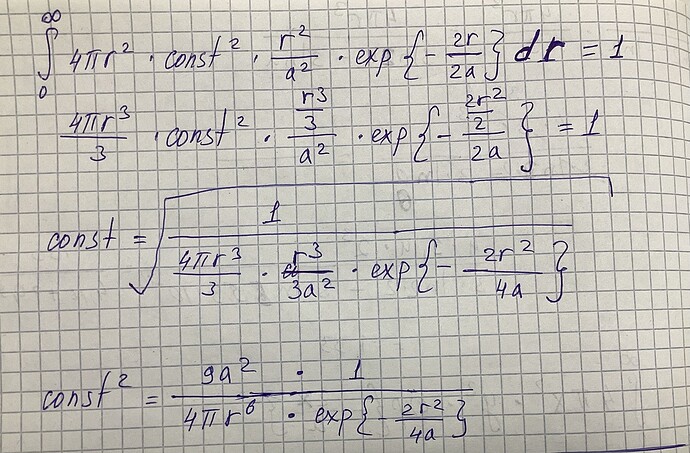 ∫₀^∞ 4πr² · const² · r²/a² · exp{- 2r/2a} dr = 1
4πr³/3 · const² · (r³/3)/a² · exp{- (2r²/2)/2a} = 1
const = √(1/(4πr³/3 · r³/3a² · exp{- 2r²/4a}))
const² = (9a² · 1)/(4πr⁶ · exp{- 2r²/4a})